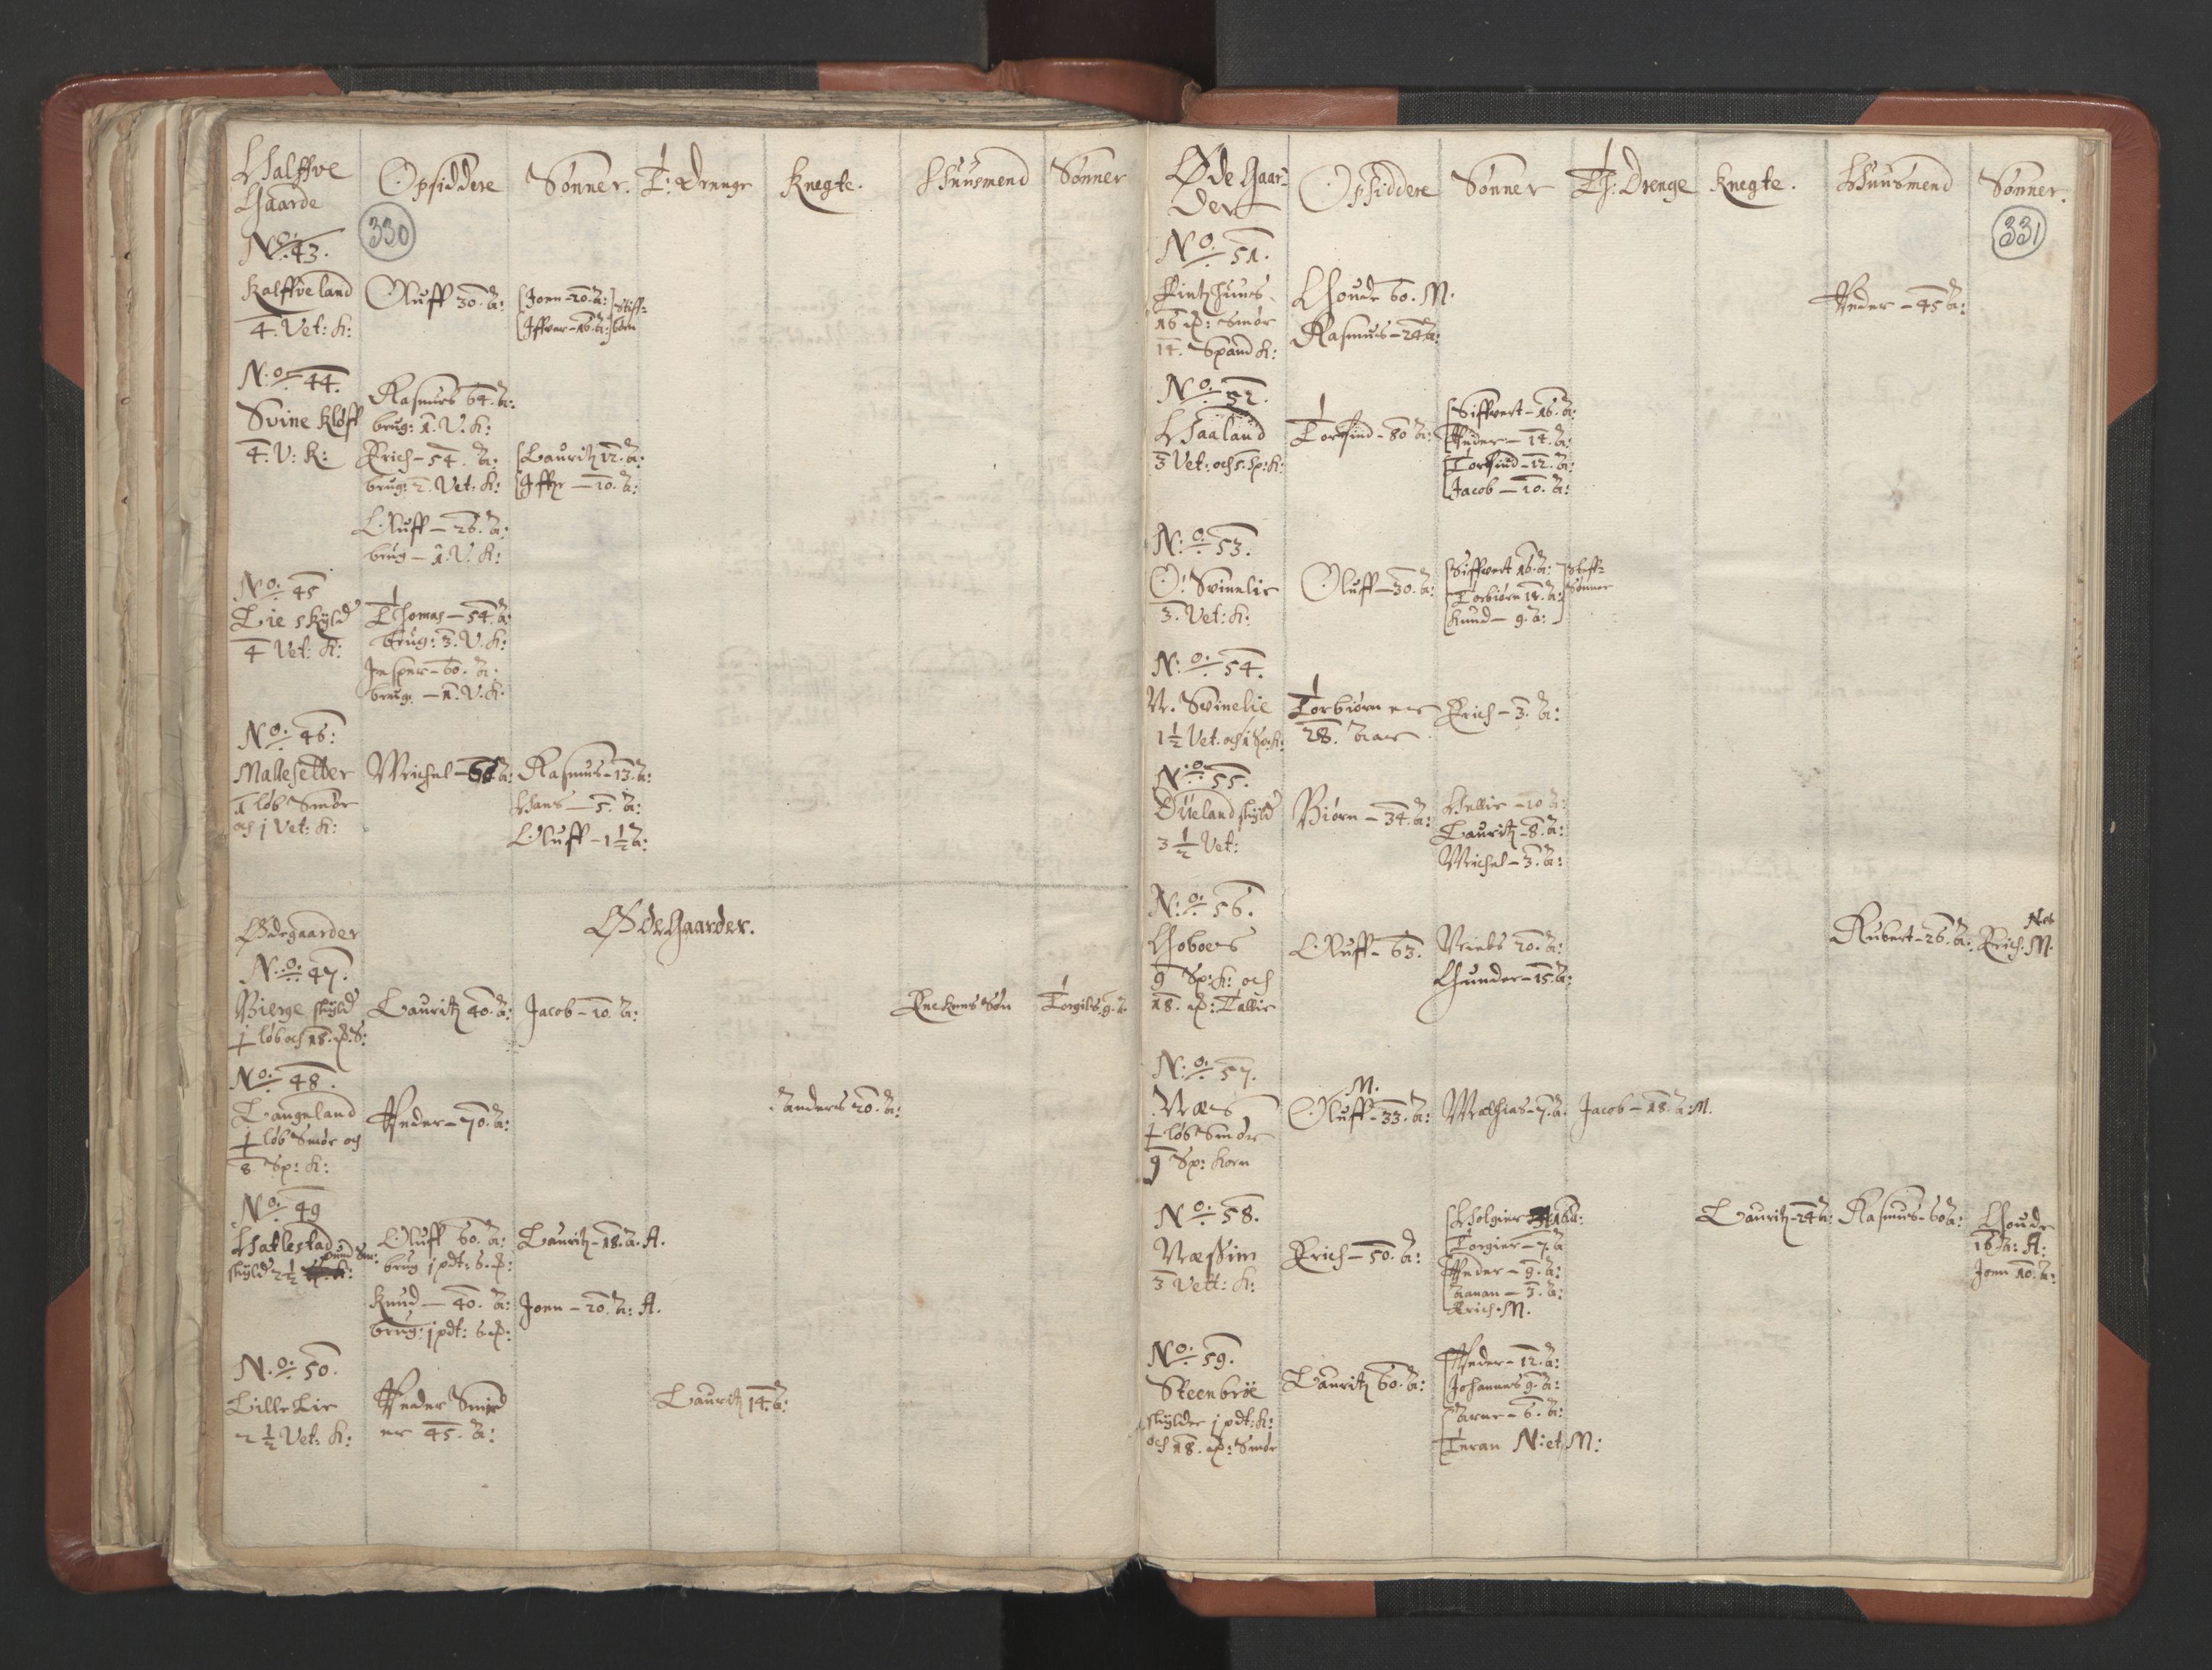 Halffve Gaarde
Opsiddere
Sønner.
T: Drenge
Knegte.
Huusmend
Sønner
330
No. 43.
Kalffveland
4. Vet: K:
Oluff 30. A:
Joen - 20. A:
Iffver - 16. A:
Stiffbørn
No. 44.
Svine Kløff
4. V: K:
Rasmus 64. A:
brug: 1. V. K:
Erich - 54. A:
brug: 2. Vet: K:
Lauritz 12. A:
Iffr - 10. A:
Oluff - 26. A:
brug - 1. V. K:
No. 45
Lie skyld
4 Vet: K:
Thomas - 54. A:
brug: 3. V. K:
Jesper - 60. A:
brug. - 1. V. K:
No. 46:
Mallesetter
1 løb Smør
och 1 Vet: K:
Michel - A:
Rasmus - 13. A:
Hans - 5. A:
Oluff - 1 1/2 A:
Ødegaarder
Øde Gaarder.
No. 47.
Bierge skyld
løb och 18. S:
Lauritz 40. A:
Jacob - 10. A:
Torgils. 9. A.
No. 48.
Langeland
løb Smør och
8. Sp: K:
Peder - 70. A:
Anders 20. A:
No. 49
Hatlestad pund Sm:
skyld 2 1/2
Oluff 60. A:
brug 1 pdt: 6.
Lauritz - 18. A. A.
Knud - 40. A:
brug: 1 pdt: 6.
Joen - 20. A: A.
No. 50.
Lille Lie
2 1/2 Vet: K:
Peder Smed
er 45. A:
Lauritz 14. A:
Øde Gaarder
Opsiddere
Sønner
Th: Drenge
Knegte.
Huusmend
Sønner.
331
No. 51.
16 Smør
14. Spand K:
Goude 60. M.
Rasmus - 24 A:
Peder - 45 A:
No. 52.
Haaland
3 Vet: och 5. Sp: K:
Torfind - 80 A:
Siffvert - 16. A:
Peder - 14. A:
Torfind - 12. A:
Jacob - 10. A:
No. 53.
O: Svinelie
3. Vet: K:
Oluff - 30. A:
Siffvert 16. A:
Torbiørn 12. A:
Knud - 9. A:
Steff-
Sønner
No. 54.
N. Svinelie
1 1/2 Vet. och 1 Sp: K:
Torbiørn er
28. Aar
Erich - 3. A:
No. 55.
Dueland skyld
3 1/2 Vet:
Biørn - 34. A:
Hellie - 10 A:
Lauritz - 8. A:
Michel - 3. A:
No. 56.
9 Sp: K: och
18. : Tallie
Oluff - 63.
Niels 20. A:
Gunder - 15. A:
Rubert - 26. A:
Erich. M.
No. 57.
Næs
løb Smør
9 Sp: Korn
M.
Oluff - 33. A:
Mathias - 7. A.
Jacob - 18. A: M.
No. 58.
Næssim
3 Vett: K:
Erich - 50. A:
Holgier
Torgier - 7. A
Peder - 9. A:
Aanan - 3. A:
Erich. M.
Lauritz - 24 A:
Rasmus - 60 A:
Goude
16 A: A:
Joen 10. A:
No. 59.
Steenbrøe
skylder 1 pdt: K:
och 18. : Smør
Lauritz 60. A:
Peder - 12. A:
Johannes 9. A:
Arne - 6. A:
N: et M: